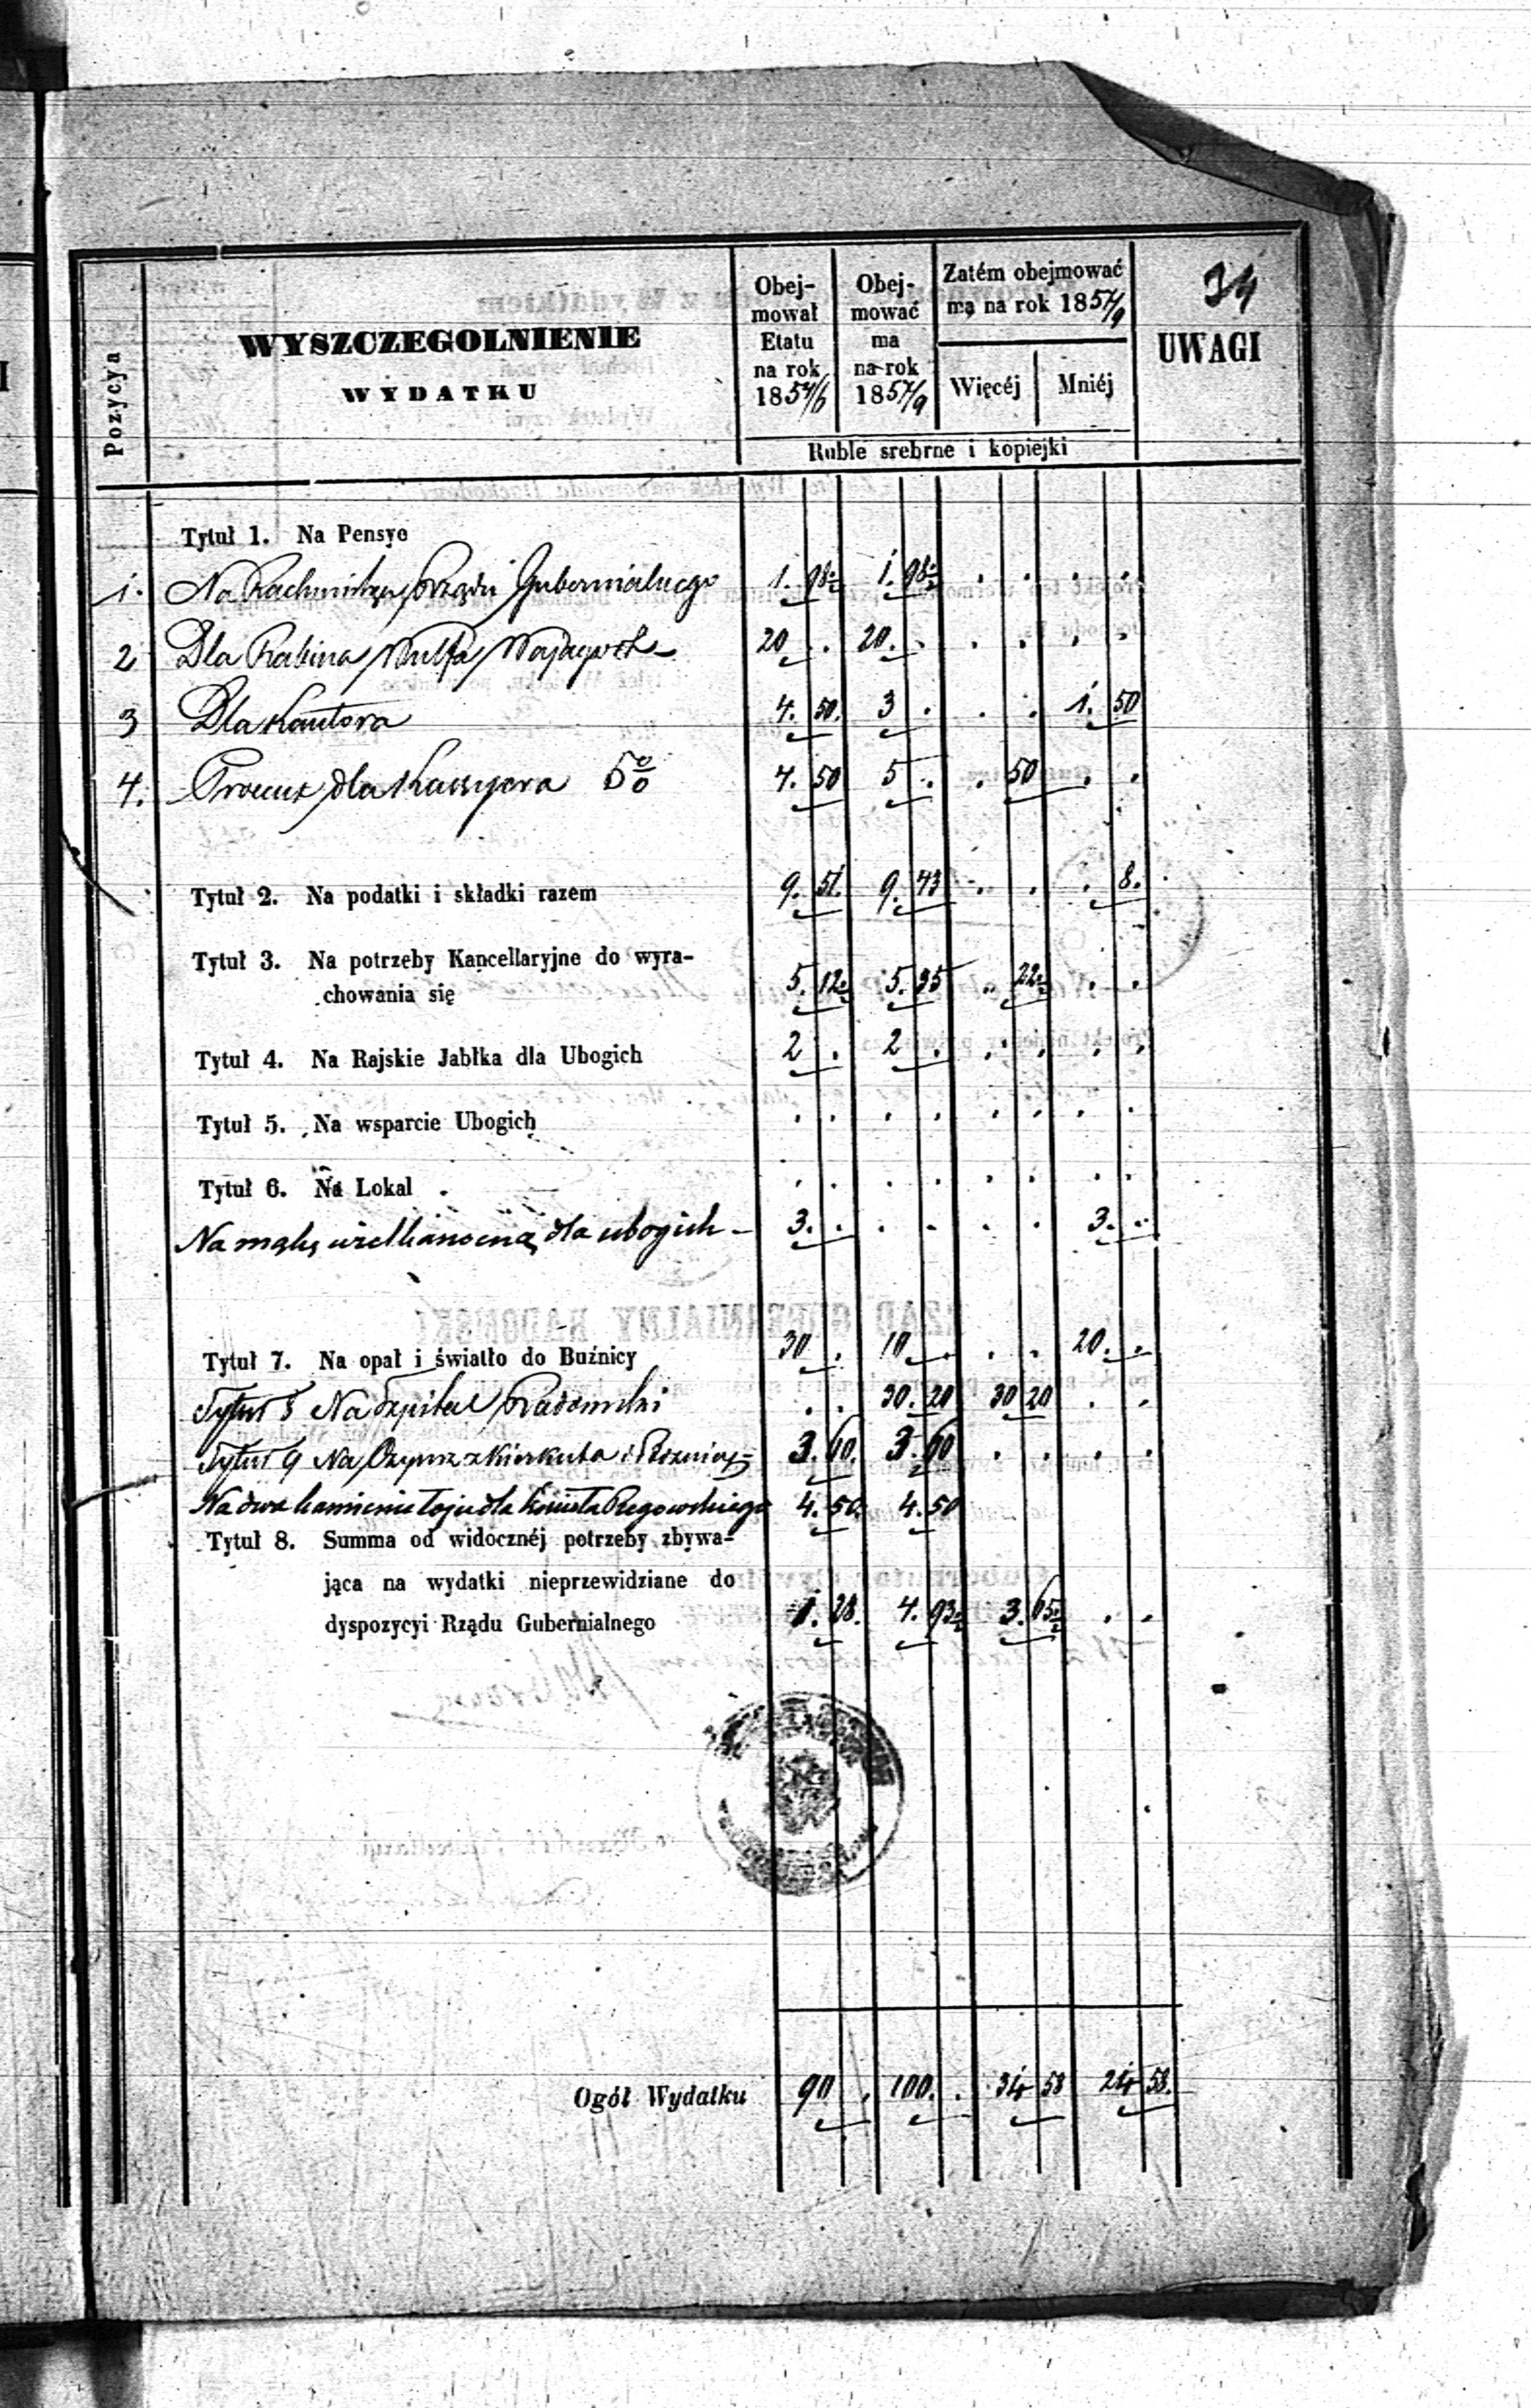 34
Pozycya
WYSZCZEGOLNIENIE
WYDATKU
Obej-
mował
Etatu
na rok
1854/6
Obej-
mować
ma
na rok
1857/9
Zatém obejmować
ma na rok 1857/9
Więcéj Mniéj
UWAGI
Ruble srebrne i kopiejki
Tytuł 1. Na Pensye
1. Na Rachmistrza Rządu Gubernialnego 1. 98½ 1. 98½ . . . .
2 Dla Rabina Wulfa 20 . 20 . . . . .
3 Dla Kantora 4. 50. 3 . . . 1. 50
4. Procent dla Kassyera 5% 4. 50 5 . . 50 . .
Tytuł 2. Na podatki i składki razem 9. 51. 9. 43 . . . 8.
Tytuł 3. Na potrzeby Kancellaryjne do wyra-
chowania się 5. 12½ 5. 35 . 22½ . .
Tytuł 4. Na Rajskie Jabłka dla Ubogich 2 . 2 . . . . .
Tytuł 5. Na wsparcie Ubogich . . . . . . . .
Tytuł 6. Na Lokal . . . . . . . .
Na mąkę wielkanocną dla ubogich 3. . . . . . 3. .
Tytuł 7. Na opał i światło do Bużnicy 30 . 10 . . . 20. .
Tytuł 8 Na Szpital Radomski . . 30. 20 30 20 . .
Tytuł 9 Na Czynsz z Kirkuta i 3. 60. 3. 60 . . . .
Na dwa kamienie łoju dla Kościoła 4. 50. 4. 50
Tytuł 8. Summa od widocznéj potrzeby zbywa-
jąca na wydatki nieprzewidziane do
dyspozycyi Rządu Gubernialnego 1. 28. 4. 93½ 3. 65½ . .
Ogół Wydatku 90 . 100. . 34 58 24 58.